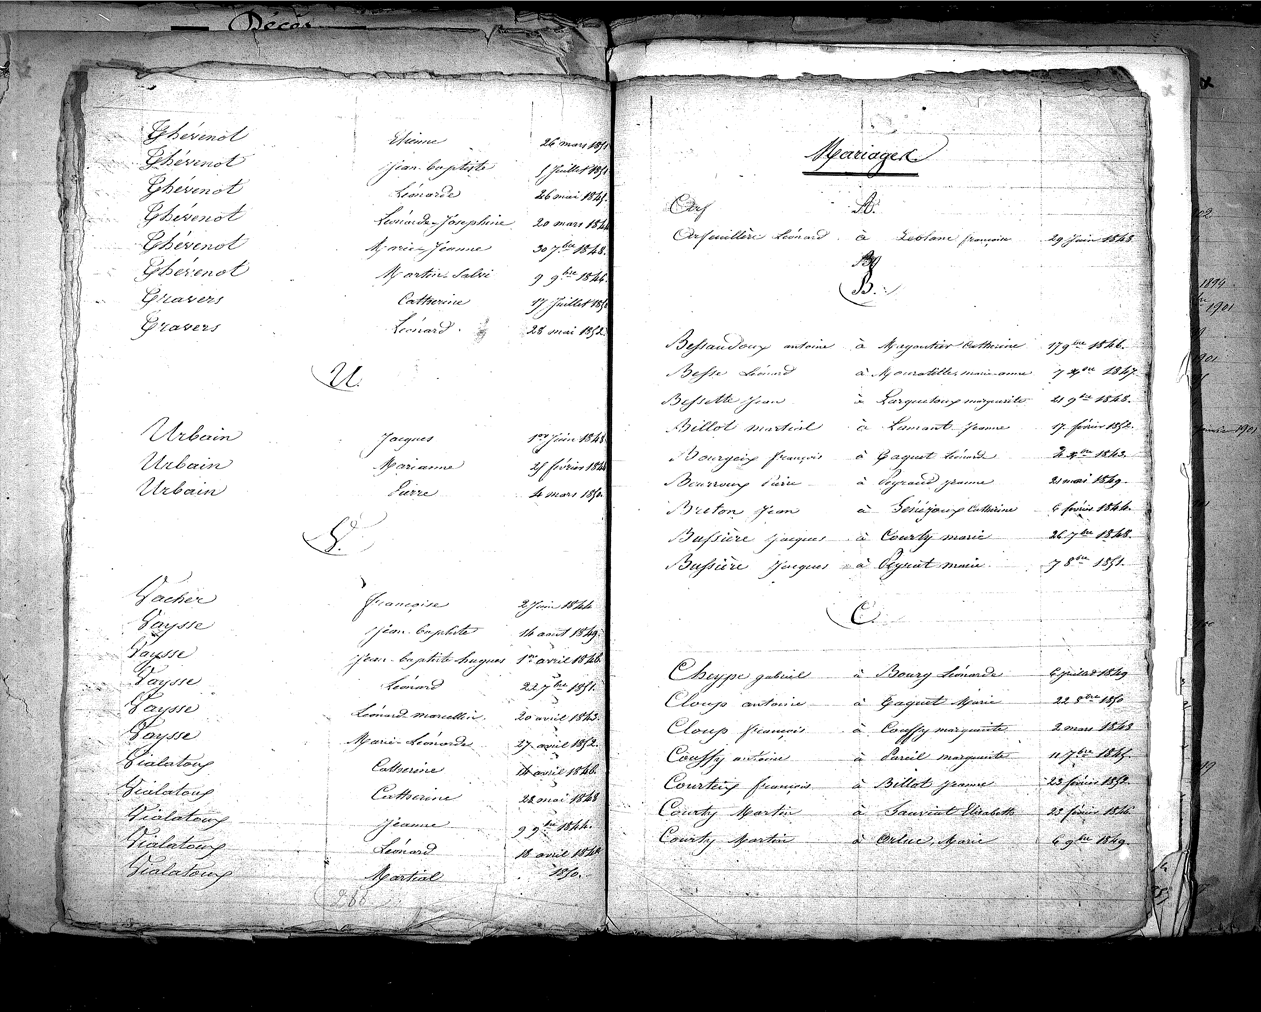 Décès
Thévenot Etienne 26 mars 185
Thévenot Jean-baptiste Juillet 185
Thévenot Léonarde 26 mai 1845.
Thévenot Léonarde-Joséphine 20 mars 184
Thévenot Marie-Jeanne 30 7bre 1848.
Thévenot Martin 9 9bre 1846.
Travers Catherine 17 Juillet 185
Travers Léonard. 28 mai 1852.
U
Urbain Jacques 1er Juin 1848
Urbain Marianne 25 février 184
Urbain Pierre 4 mars 1850.
V.
Vacher françoise 2 Juin 1844
Vaysse Jean-baptiste 14 aout 1849.
Vaysse Jean-baptiste hugues 1er avril 1846.
Vaysse Léonard 22 7bre 1851.
Vaysse Léonard marcellin. 20 avril 1843.
Vaysse Marie-Léonarde 27 avril 1852.
Vialatoux Catherine 14 avril 1846.
Vialatoux Catherine 22 mai 1848
Vialatoux Jeanne 9 9bre 1844.
Vialatoux Léonard 18 avril 1844
Vialatoux Martial 1850.
Mariages
A.
Orfeuillère Léonard à Leblanc françoise 29 Juin 1848.
B.
Bessaudoux antoine à Magoutier Catherine 17 9bre 1846.
Besse Léonard à marie-anne 7 1847.
Bessette Jean à Larquetoux marguerite 21 9bre 1848.
Billot martial à Lamant Jeanne 17 février 1852.
Bourgeix françois à Gaquet Léonarde 2 1843.
Bourroux Pierre à Peyraud Jeanne 21 mai 1849.
Breton Jean à Sénéjoux Catherine 6 février 1844.
Bussière Jacques à Courty marie 26 7bre 1848.
Bussière Jacques à Peyrat marie. 7 8bre 1851.
C
Cheype gabriel à Bourg Léonarde 6 juillet 1849
Cloup antoine à Gaquet Marie 22 8bre 1850
Cloup françois à Couffy marguerite 2 mars 1848
Couffy antoine à Pareil marguerite 11 7bre 1845.
Courteix françois à Billot Jeanne 23 février 1852.
Courty Martin à Elizabeth 23 février 1846.
Courty Martin à Orluc, Marie 6 9bre 1849.